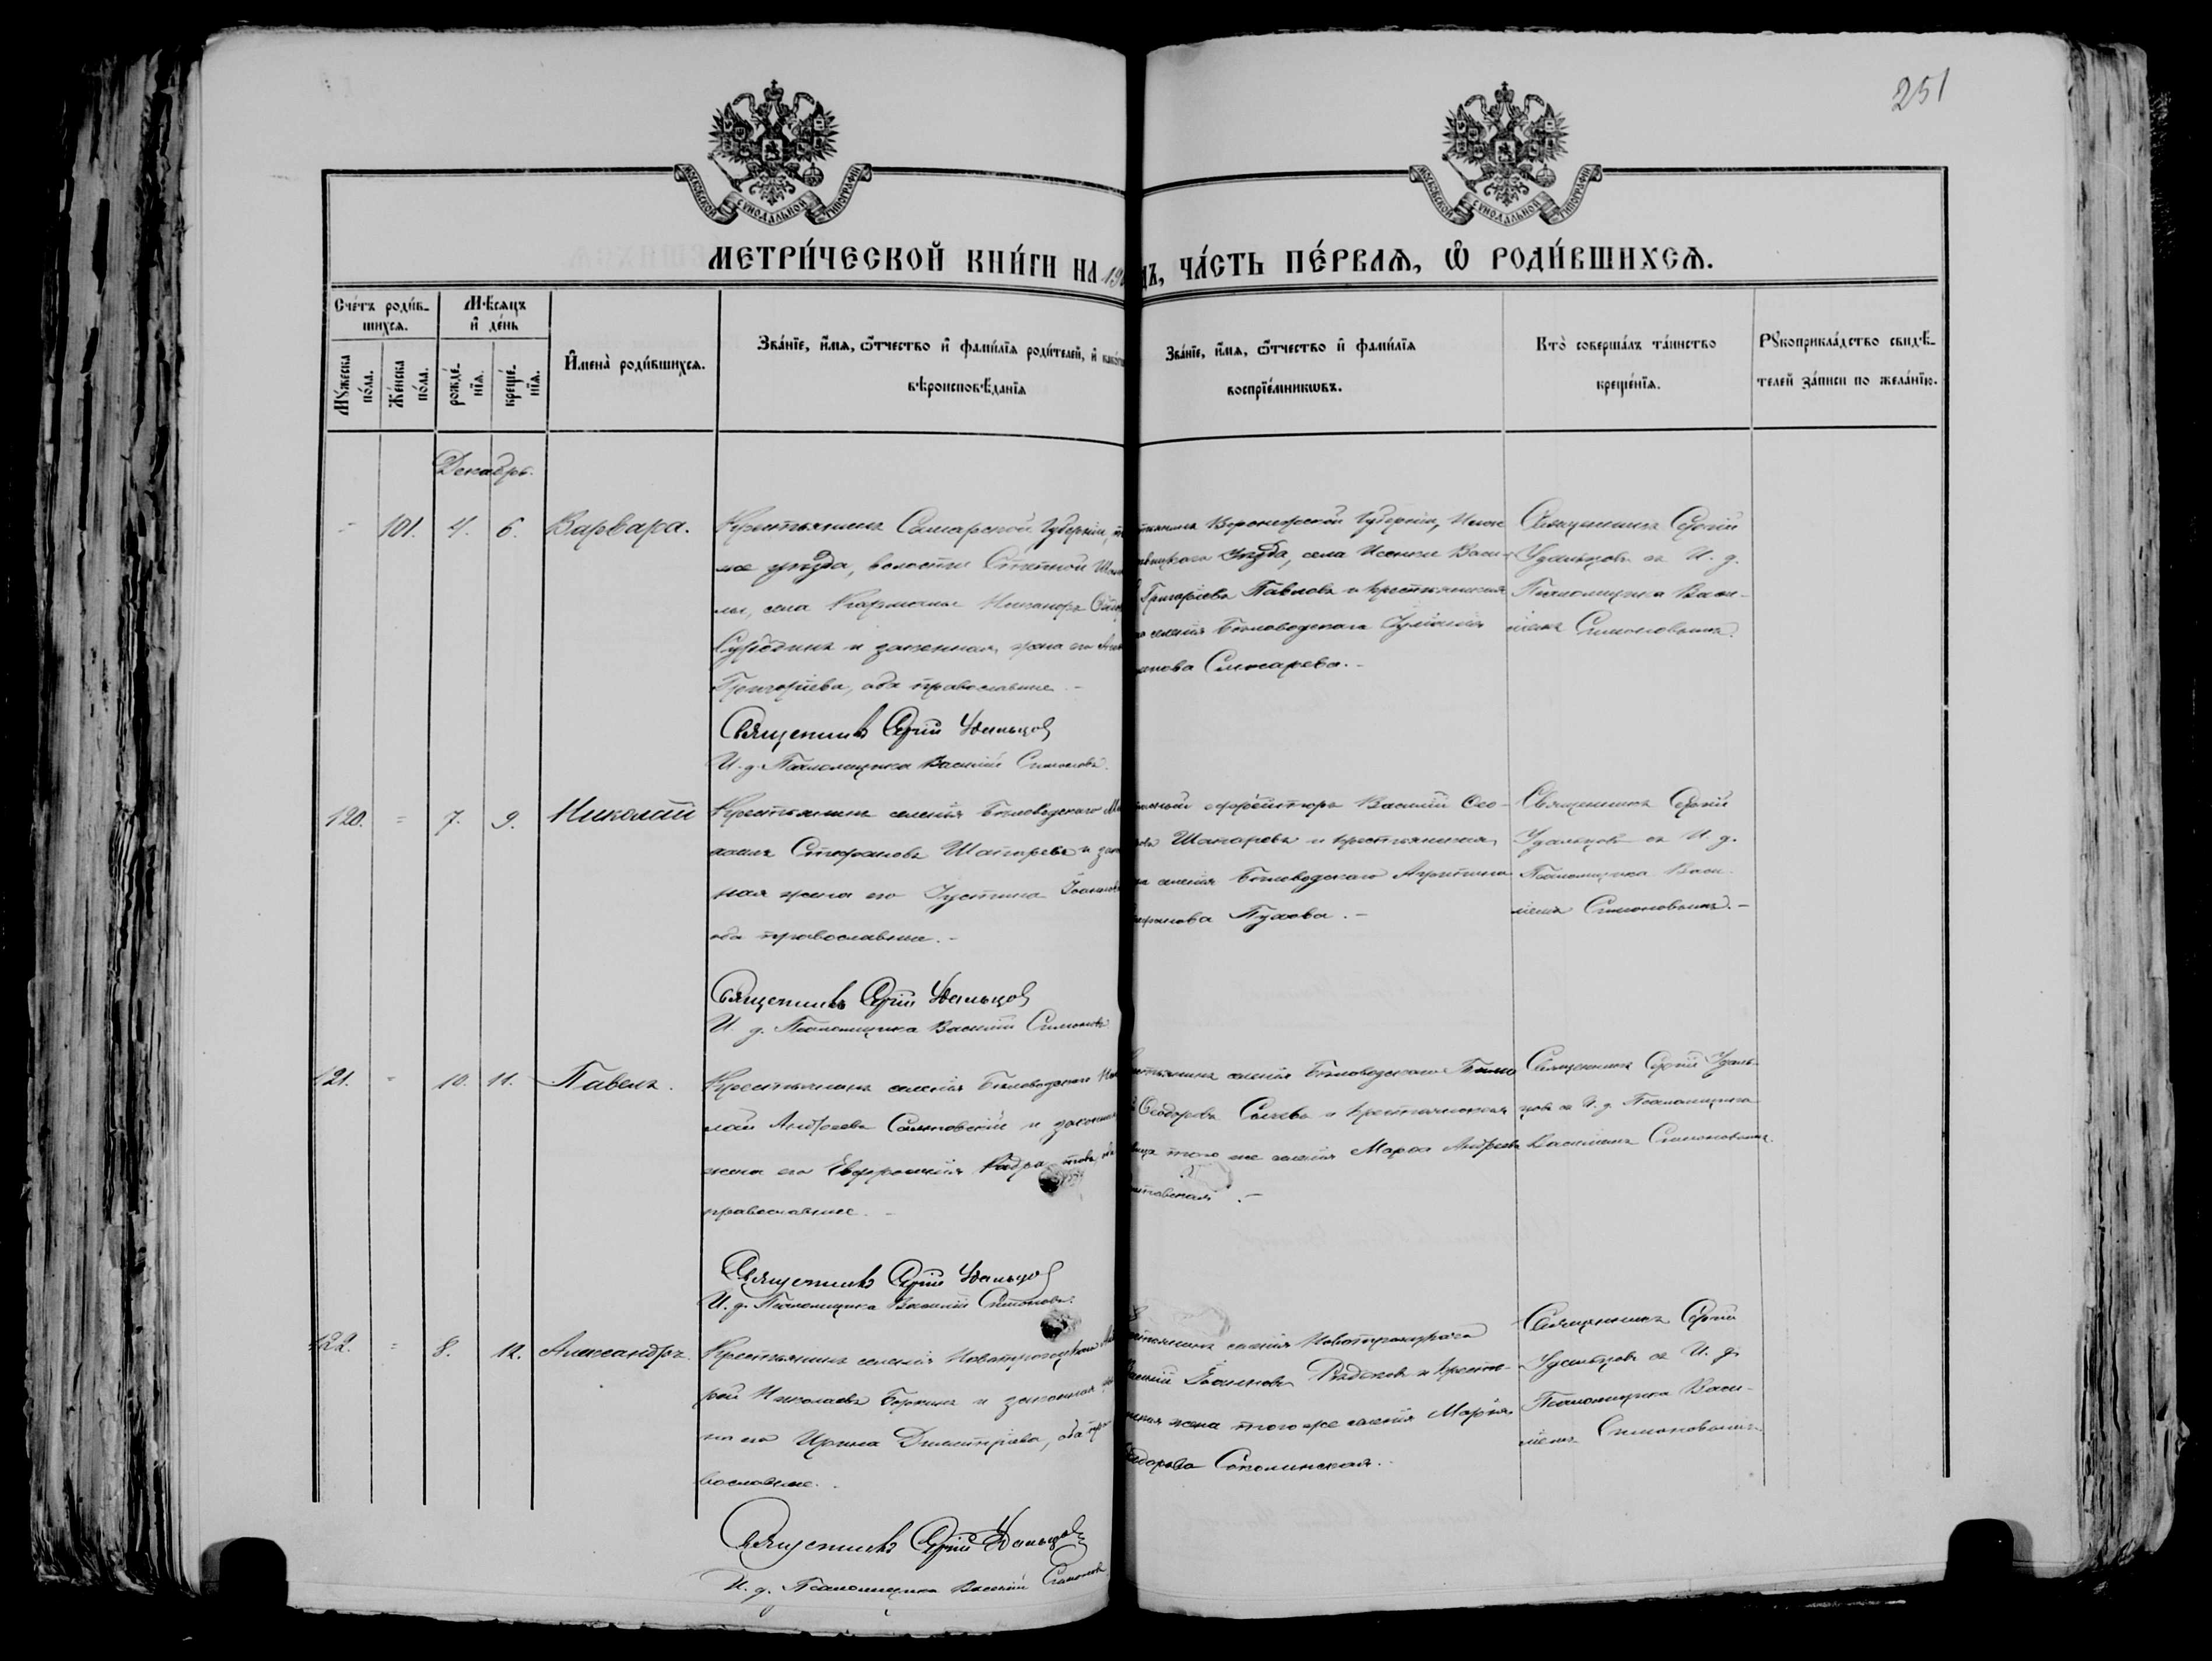 251
МОСКОВСКОЙ СУНОДАЛЬНОЙ ТИПОГРАФІИ
МОСКОВСКОЙ СУНОДАЛЬНОЙ ТИПОГРАФІИ
МЕТРИ́ЧЕСКОЙ КНИ́ГИ НА 19
ДЪ, ЧА́СТЬ ПЕ́РВАѦ, Ѡ РОДИ́ВШИХСѦ.
Сче́тъ роди́в-
шихсѧ.
Мѣсѧцъ
и де́нь
Мꙋ́жеска
по́ла.
Же́нска
по́ла.
рожде́-
нїѧ.
креще́-
нїѧ.
Имена̀ роди́вшихсѧ.
Зва́нїе, и́мѧ, ѻ́тчество и фами́лїѧ роди́телей, и како́г
вѣроисповѣ́данїѧ
Зва́нїе, и́мѧ, ѻ́тчество и фами́лїѧ
воспрїе́мникѡвъ.
Кто̀ соверша́лъ та́инство
креще́нїѧ.
Рꙋкоприкла́дство свидѣ́-
телей за́писи по жела́нїю.
Декабрь.
- 101. 4. 6. Варвара.
Крестьянинъ Самарской Губерніи,
же уѣзда, волости Степной
лы, села Никаноръ
и законная жена его
Григорьева, оба православные. -
Священникъ Сергій Удальцов
И. д. Псаломщика Василій Симоновъ.
Воронежской Губерніи,
уѣзда, села
Григоріевъ Павловъ и крестьянская
селенія Бѣловодскаго
Слюсарева. -
Священникъ Сергій
Удальцовъ съ И. д.
Псаломщика Васи-
ліемъ Симоновымъ.
120. = 7. 9. Николай
Крестьянинъ селенія Бѣловодскаго
Стефановъ Шапаревъ и зак
ная жена его Іустина Іоаннов
оба православные. -
Священникъ Сергій Удальцов
И. д. Псаломщика Василій Симоновъ
ефрейторъ Василій Ѳео-
Шапаревъ и крестьянская
селенія Бѣловодскаго
Пухова. -
Священникъ Сергій
Удальцовъ съ И. д.
Псаломщика Васи-
ліемъ Симоновымъ. -
121. = 10. 11. Павелъ.
Крестьянинъ селенія Бѣловодскаго Ни
лай Андреевъ и законная
жена его Евфросинія
православные. -
Священникъ Сергій Удальцов
И. д. Псаломщика Василій Симоновъ.
селенія Бѣловодскаго
Ѳеодоровъ Сычевъ и крестьянская
того же селенія Марѳа Андреева
Священникъ Сергій Удаль-
цовъ съ И. д. Псаломщика
Василіемъ Симоновымъ.
122. = 8. 12. Александръ.
Крестьянинъ селенія Новотроицкаго
рей Николаевъ и законная
на его Ирина Димитріева, оба пра
вославные.
Священникъ Сергій Удальцов
И. д. Псаломщика Василій Симоновъ.
селенія Новотроицкаго
Іоанновъ Рябковъ и кресть-
жена того же селенія Марія
Соколинская.
Священникъ Сергій
Удальцовъ съ И. д.
Псаломщика Васи-
ліемъ Симоновымъ